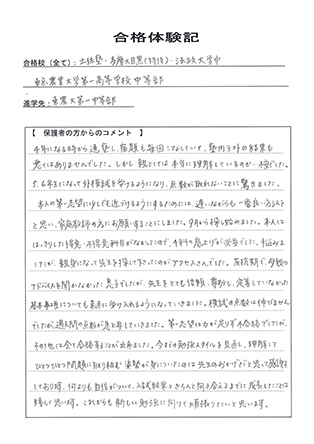 合格体験記
合格校(全て): 土佐塾・多摩大目黒(特待)・法政大学中
東京農業大学第一高等学校中等部
進学先: 東農大第一中等部
【 保護者の方からのコメント 】
4年になる時から通塾し、宿題も毎回こなしていて、塾内テストの結果も
悪くはありませんでした。しかし親としては本当に理解しているのか不安でした。
5、6年生になって外模試を受けるようになり、点数が取れないことに驚きました。
本人の第一志望に少しでも近づけるようにするためには、遅いながらも一番良い方法を
と思い、家庭教師の方にお願いすることにしました。9月から探し始めました。本人には
はっきりした得意・不得意科目がなかったので、4科の底上げが必要でした。悩みま
したが、親身になって先生を探して下さったのがアクセスさんでした。反抗期で、母親の
アドバイスを聞かなかった息子でしたが、先生をとても信頼、尊敬し、定着していなかった
基本事項についても素直に受け入れるようになっていきました。模試の点数は伸びません
でしたが、過去問の点数が急上昇していきました。第一志望は力が足りず不合格でしたが、
その他は全て合格することが出来ました。今までの勉強スタイルを見直し、理解して
ひとつひとつ問題に取り組む姿勢が身についたのは先生のおかげだと思って感謝
しております。何よりも自信がついて、入試結果ときちんと向き合えるまでに成長したことは
嬉しく思います。これからも新しい勉強に向けて頑張りたいと思います。